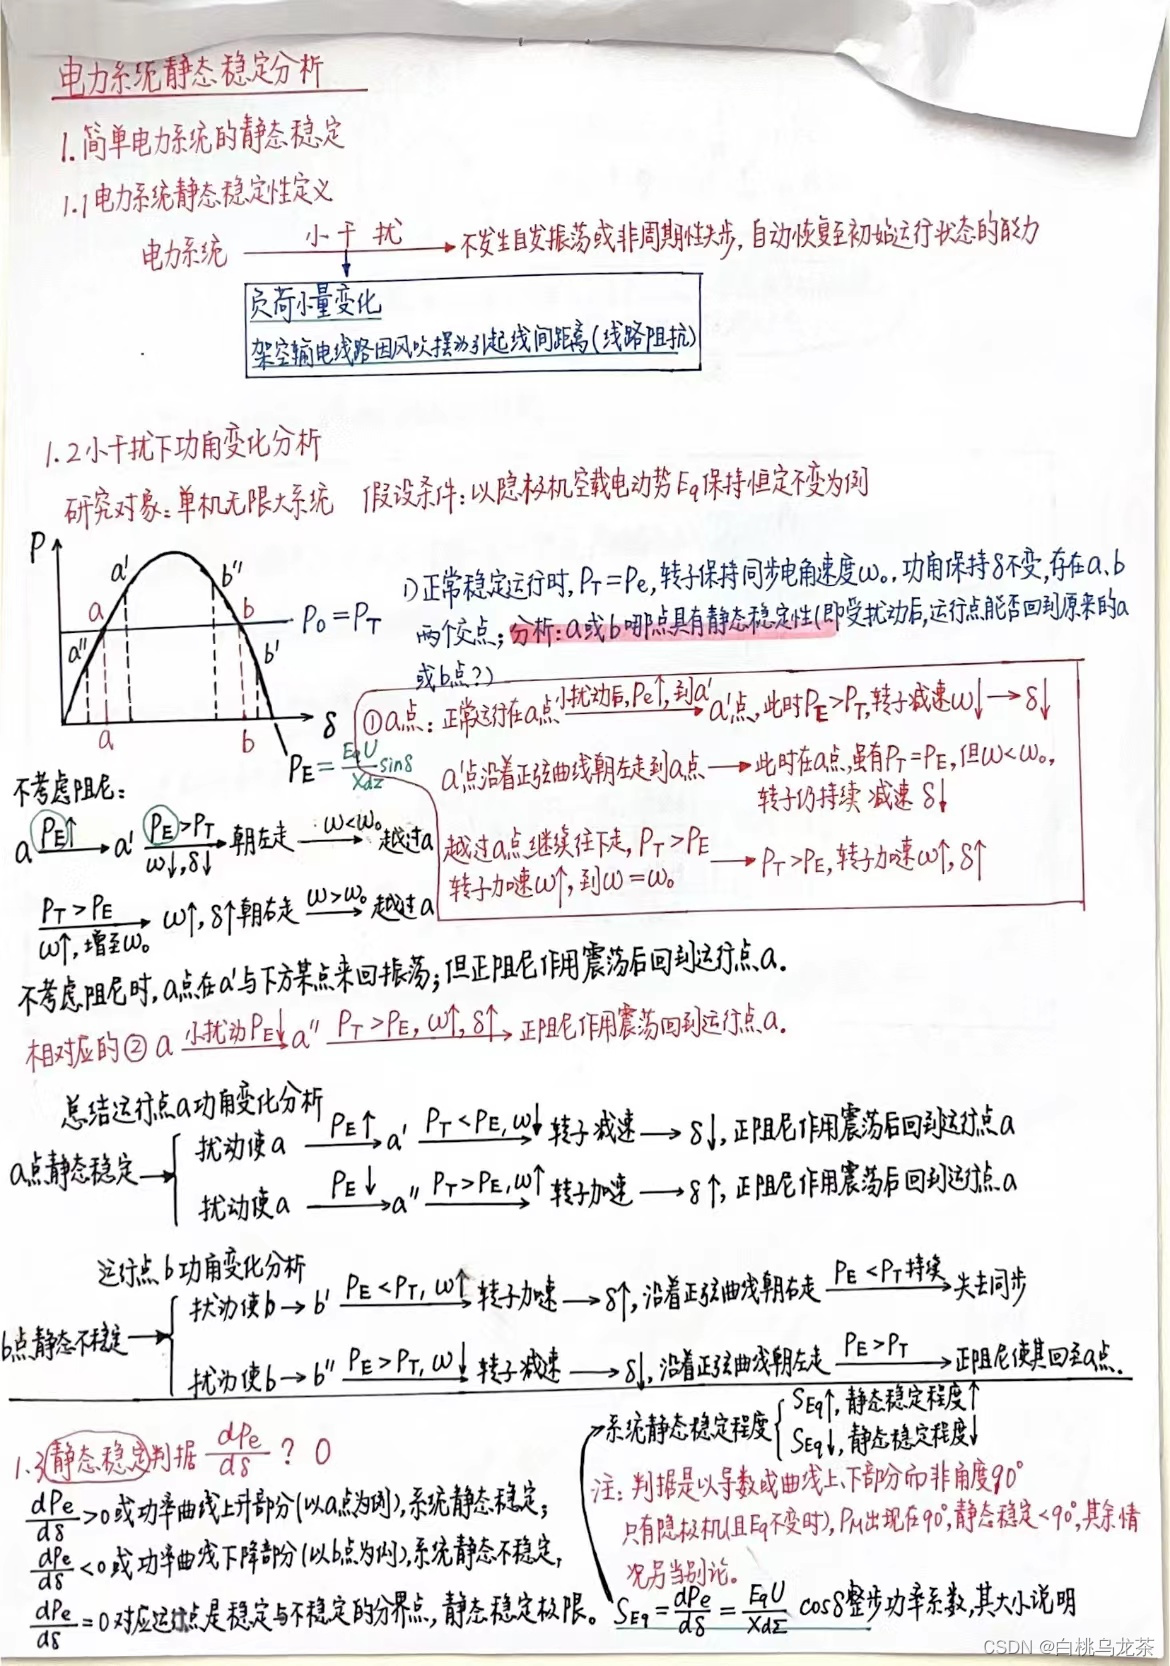 电力系统静态稳定分析
1.简单电力系统的静态稳定
1.1电力系统静态稳定性定义
电力系统 小干扰 不发生自发振荡或非周期性失步,自动恢复至初始运行状态的能力
负荷小量变化
架空输电线路因风吹摆动引起线间距离(线路阻抗)
1.2小干扰下功角变化分析
研究对象:单机无限大系统 假设条件:以隐极机空载电动势Eq保持恒定不变为例
P
a' b''
a b P₀=PT
a'' b'
a b δ
PE=EqU/XdΣ sinδ
1)正常稳定运行时,PT=Pe,转子保持同步电角速度ω₀,功角保持δ不变,存在a、b
两个交点;分析:a或b哪点具有静态稳定性(即受扰动后,运行点能否回到原来的a
或b点?)
①a点:正常运行在a点 小扰动后,Pe↑,到a'→ a'点,此时PE>PT,转子减速ω↓→δ↓
a'点沿着正弦曲线朝左走到a点→此时在a点,虽有PT=PE,但ω<ω₀,
转子仍持续减速δ↓
越过a点继续往下走,PT>PE
转子加速ω↑,到ω=ω₀ → PT>PE,转子加速ω↑,δ↑
不考虑阻尼:
a PE↑→ a' PE>PT ω↓,δ↓→ 朝左走 ω<ω₀→ 越过a
PT>PE ω↑,增至ω₀→ ω↑,δ↑朝右走 ω>ω₀→ 越过a
不考虑阻尼时,a点在a'与下方某点来回振荡;但正阻尼作用震荡后回到运行点a.
相对应的② a 小扰动PE↓→ a'' PT>PE,ω↑,δ↑→ 正阻尼作用震荡回到运行点a.
总结运行点a功角变化分析
a点静态稳定→
扰动使a PE↑→ a' PT<PE,ω↓→ 转子减速→δ↓,正阻尼作用震荡后回到运行点a
扰动使a PE↓→ a'' PT>PE,ω↑→ 转子加速→δ↑,正阻尼作用震荡后回到运行点a
运行点b功角变化分析
b点静态不稳定→
扰动使b→b' PE<PT,ω↑→ 转子加速→δ↑,沿着正弦曲线朝右走 PE<PT持续→ 失去同步
扰动使b→b'' PE>PT,ω↓→ 转子减速→δ↓,沿着正弦曲线朝左走 PE>PT→ 正阻尼使其回至a点.
1.3静态稳定判据 dPe/dδ ? 0
dPe/dδ>0或功率曲线上升部分(以a点为例),系统静态稳定;
dPe/dδ<0或功率曲线下降部分(以b点为例),系统静态不稳定,
dPe/dδ=0对应运行点是稳定与不稳定的分界点,静态稳定极限。
SEq=dPe/dδ=EqU/XdΣ cosδ整步功率系数,其大小说明
系统静态稳定程度
SEq↑,静态稳定程度↑
SEq↓,静态稳定程度↓
注:判据是以导数或曲线上、下部分而非角度90°
只有隐极机(且Eq不变时),PM出现在90°,静态稳定<90°,其余情
况另当别论。
CSDN @白桃乌龙茶